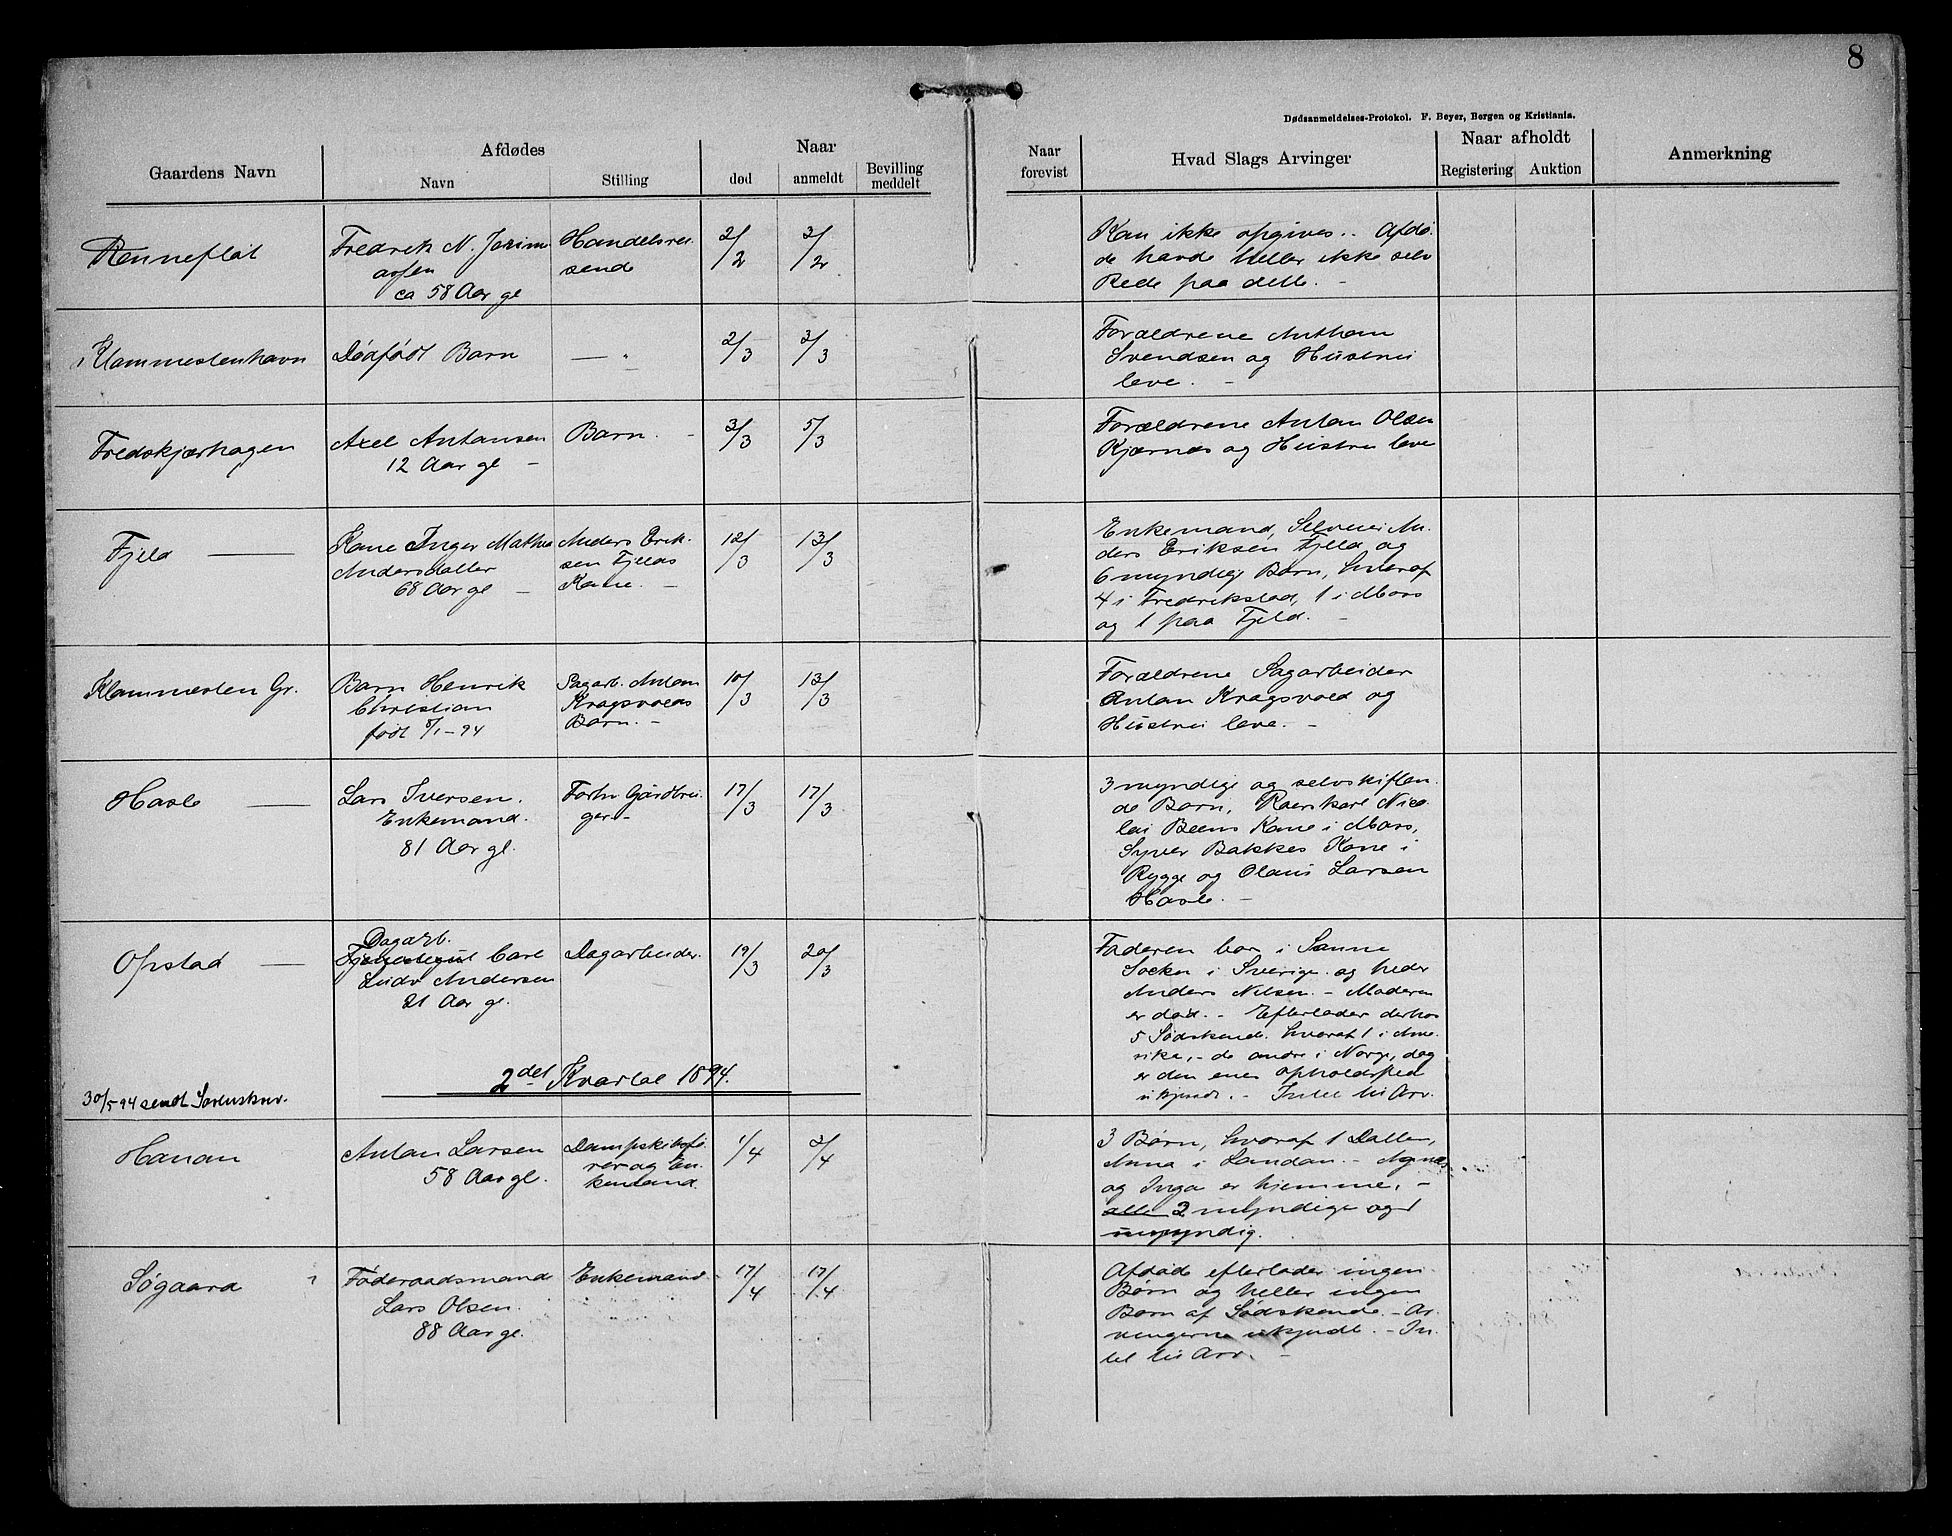 8
Dødsanmeldelses-Protokol. F. Beyer, Bergen og Kristiania.
Gaardens Navn
Afdødes
Navn
Stilling
Naar
død
anmeldt
Bevilling
meddelt
Naar
forevist
Hvad Slags Arvinger
Naar afholdt
Registering
Auktion
Anmerkning
Fredrik N.
ca 58 Aar gl
Handelsrei
sende
2/2
3/2
Kan ikke opgives.. Afdø.
de havde heller ikke selv
Rede paa dette. -
Klammestenhavn
Dødfødt Barn
— "
2/3
3/3
Forældrene Anthon
Svendsen og Hustru
leve. -
Fredskjærhagen
Axel Antonsen
12 Aar gl -
Barn. -
3/3
5/3
Forældrene Anton Olsen
Kjærnæs og Hustru leve
Fjeld —
Kone Inger Mathea
Andersdatter
68 Aar gl -
Anders Erik-
sen Fjelds
Kone. -
12/3
13/3
Enkemand, Selveier An-
ders Eriksen Fjeld og
6 myndige Børn, hvoraf
4 i Fredrikstad, 1 i Moss
og 1 paa Fjeld. -
Klammersten Gr.
Barn Henrik
Christian
født 5/1-94
Sagarb. Anton
Kragsvolds
Barn. -
10/3
13/3
Forældrene Sagarbeider
Anton Kragsvold og
Hustru leve. -
Hasle —
Lars Iversen.
Enkemand.
81 Aar gl.
Forhv Gårdbru
ger. -
17/3
17/3
3 myndige og selvskiften
de Børn, Roerskarl Nico
lai Beens Kone i Moss,
Syver Bakkes Kone i
Rygge og Olaus Larsen
Hasle. -
Opstad —
Dagarb.
Carl
Ludv Andersen
21 Aar gl.
Dagarbeider.
19/3
20/3
Faderen bor i Sanne
Socken i Sverige og heder
Anders Nilsen. - Moderen
er død. - Efterlader derhos
5 Sødskende. hvoraf 1 i Ame
rika, - de andre i Norge, dog
er den enes opholdssted
ukjendt. - Intet til Arv.
2det Kvartal 1894.
30/5 94 sendt Sorenskriv.
Hanan
Anton Larsen
58 Aar gl.
Dampskibsfø
rer og En.
kemand.
1/4
3/4
3 Børn, hvoraf 1 Datter,
Anna i London. - Agnes
og Inga er hjemme, -
alle 2 myndige og 1
umyndig.
Søgaard
Føderaadsmand
Lars Olsen.
88 Aar gl.
Enkemand.
17/4
17/4
Afdøde efterlader ingen
Børn og heller ingen
Børn af Sødskende. - Ar
vingerne ukjendt. - In
tet til Arv. -